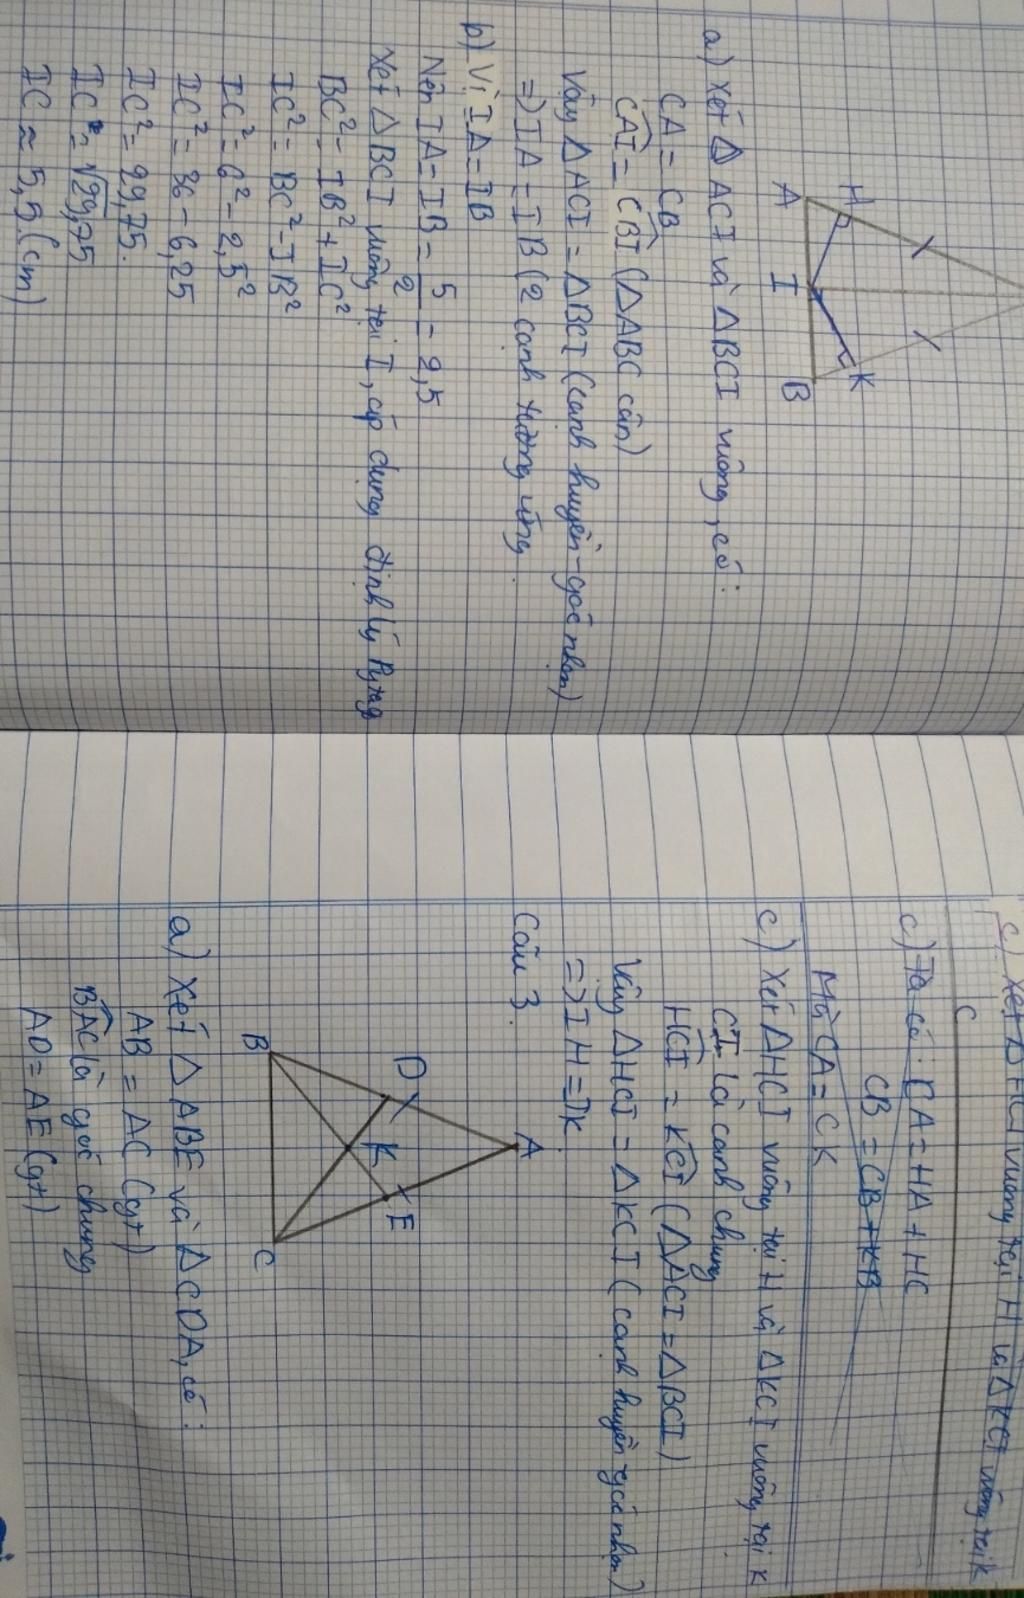 H
A
I
K
B
a) Xét Δ ACI và Δ BCI vuông, có:
CA = CB
CAI = CBI (ΔABC cân)
Vậy Δ ACI = ΔBCI (cạnh huyền - góc nhọn)
=> IA = IB (2 cạnh tương ứng
b) Vì IA = IB
Nên IA = IB = 5/2 = 2,5
Xét Δ BCI vuông tại I, áp dụng định lý Pytago
BC² = IB² + IC²
IC² = BC² - IB²
IC² = 6² - 2,5²
IC² = 36 - 6,25
IC² = 29,75.
IC = √29,75
IC ≈ 5,5 (cm)
c) Xét Δ HCI vuông tại H và Δ KCI vuông tại K
C
c) Ta có: CA = HA + HC
CB = CB + KB
Mà CA = CK
c) Xét ΔHCI vuông tại H và ΔKCI vuông tại K
CI là cạnh chung
HCI = KCI (ΔACI = ΔBCI)
Vậy ΔHCI = ΔKCI (cạnh huyền góc nhọn)
=> IH = IK
Câu 3.
A
D
E
K
B
C
a) Xét Δ ABE và Δ CDA, có:
AB = AC (gt)
BAC là góc chung
AD = AE (gt)